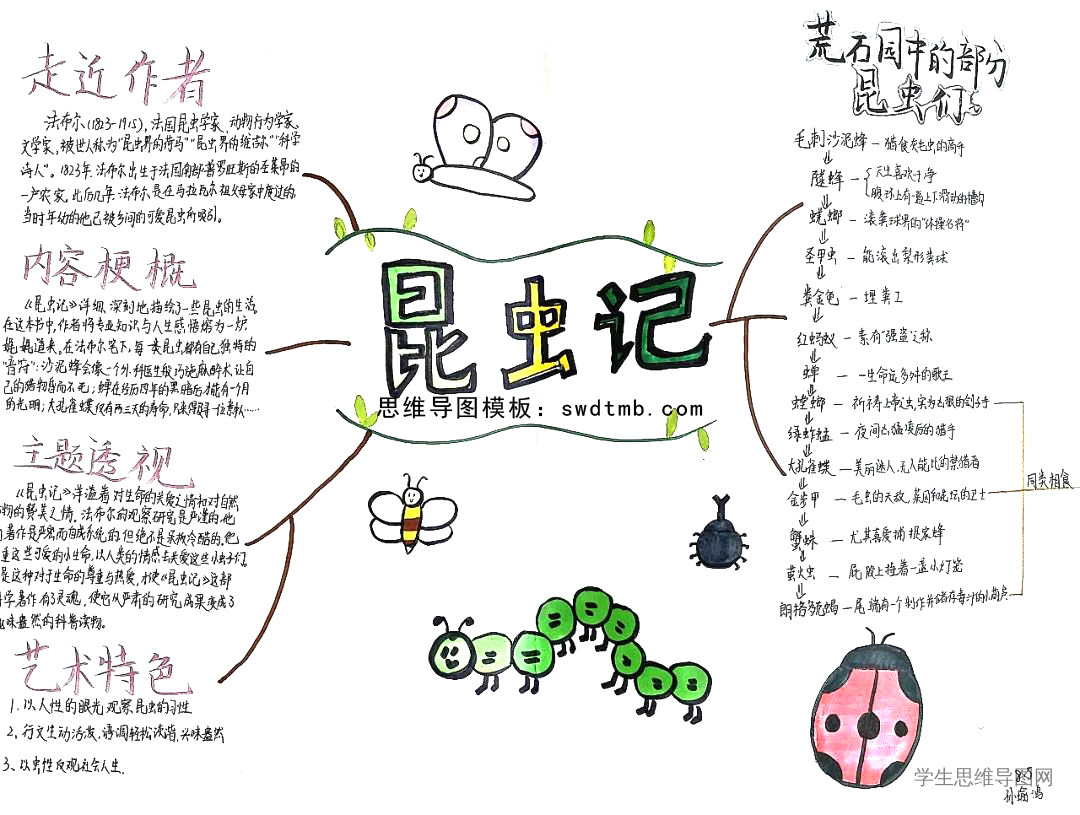 走近作者
法布尔(1823-1915),法国昆虫学家、动物行为学家、
文学家,被世人称为"昆虫界的荷马""昆虫界的维吉尔""科学
诗人"。1823年,法布尔出生于法国南部普罗旺斯的圣莱昂的
一户农家。此后几年,法布尔是在马拉瓦尔祖父母家中度过的,
当时年幼的他已被乡间的可爱昆虫所吸引。
内容梗概
《昆虫记》详细、深刻地描绘了一些昆虫的生活,
在这本书中,作者将专业知识与人生感悟熔为一炉,
娓娓道来。在法布尔笔下,每一类昆虫都有自己独特的
"音符":沙泥蜂会像一个外科医生般巧施麻醉术,让自
己的猎物昏而不死;蝉在经历四年的黑暗后才能有一个月
的光明;大孔雀蝶仅有两三天的寿命,只为
主题透视
《昆虫记》洋溢着对生命的关爱之情和对自然
物的赞美之情。法布尔的观察研究是严谨的,他
著作是严密而自成系统的,但绝不是呆板冷酷的。他
重这些可爱的小生命,以人类的情感去关爱这些小虫子们,
是这种对于生命的尊重与热爱,才使《昆虫记》这部
学著作有了灵魂,使它从严肃的研究成果变成了
味盎然的科普读物。
艺术特色
1.以人性的眼光观察昆虫的习性
2、行文生动活泼,语调轻松诙谐,兴味盎然
3、以虫性反观社会人生.
昆虫记
思维导图模板:swdtmb.com
荒石园中的部分
昆虫们。
毛刺沙泥蜂 — 猎食灰毛虫的高手
隧蜂 — 天生喜欢干净
腹部上有一道上下滑动的槽沟
蜣螂 — 滚粪球界的"体操名将"
圣甲虫 — 能滚出梨形粪球
粪金龟 — 埋粪工
红蚂蚁 — 素有"强盗"之称
蝉 — 一生命运多舛的歌王
螳螂 — 祈祷上帝虫,实为凶狠的刽子手
绿蚱蜢 — 夜间凶猛凌厉的猎手
大孔雀蝶 — 美丽迷人,无人能比的禁猎者
金步甲 — 毛虫的天敌,菜园和花坛的卫士
同类相食
蟹蛛 — 尤其喜爱捕捉家蜂
萤火虫 — 屁股上挂着一盏小灯笼
朗格多克蝎 — 尾端有一个制作并储存毒汁的小葫芦
学生思维导图网